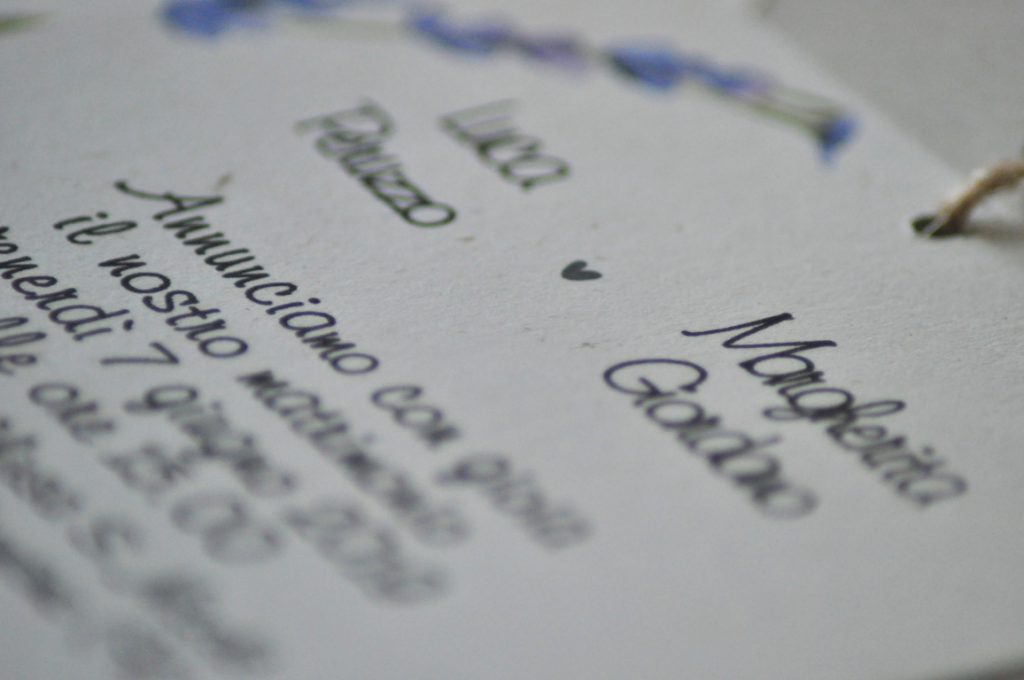 Luca
Peruzzo
♥
Margherita
Giordano
Annunciamo con gioia
il nostro matrimonio
venerdì 7 giugno
lle ore 15.00
S.